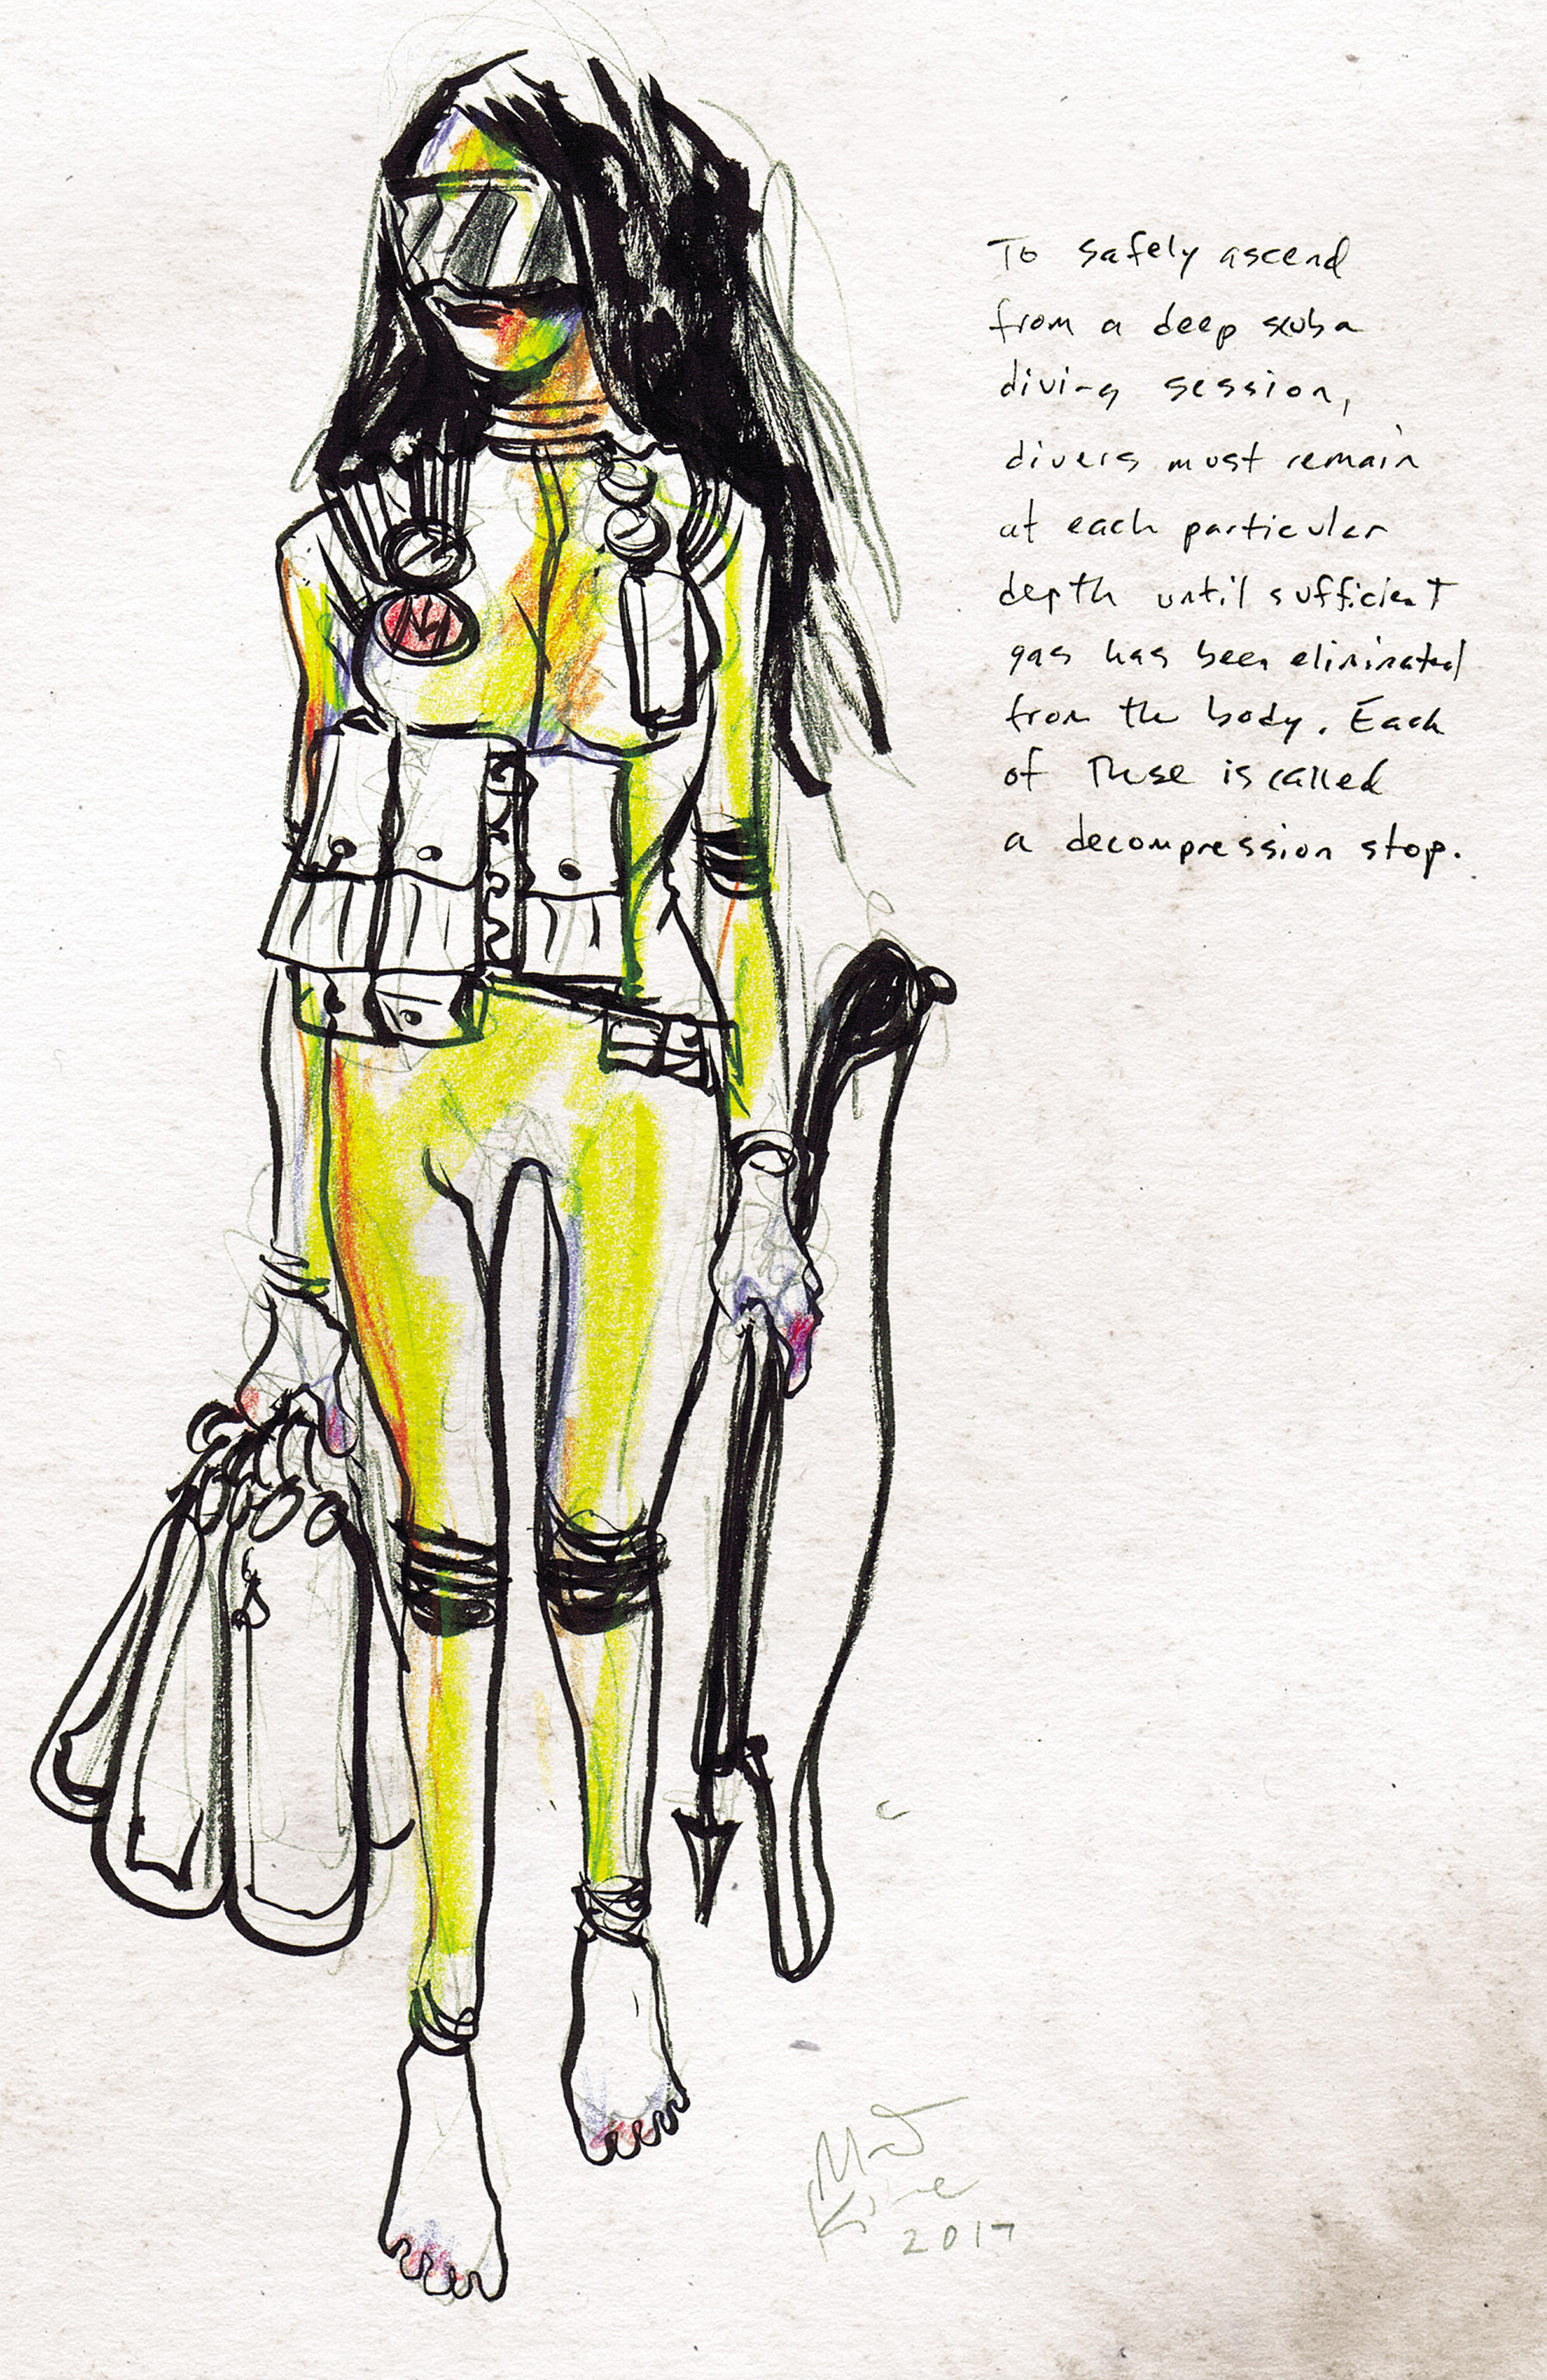 To safely ascend
from a deep scuba
diving session,
divers must remain
at each particular
depth until sufficient
gas has been eliminated
from the body. Each
of these is called
a decompression stop.
2017